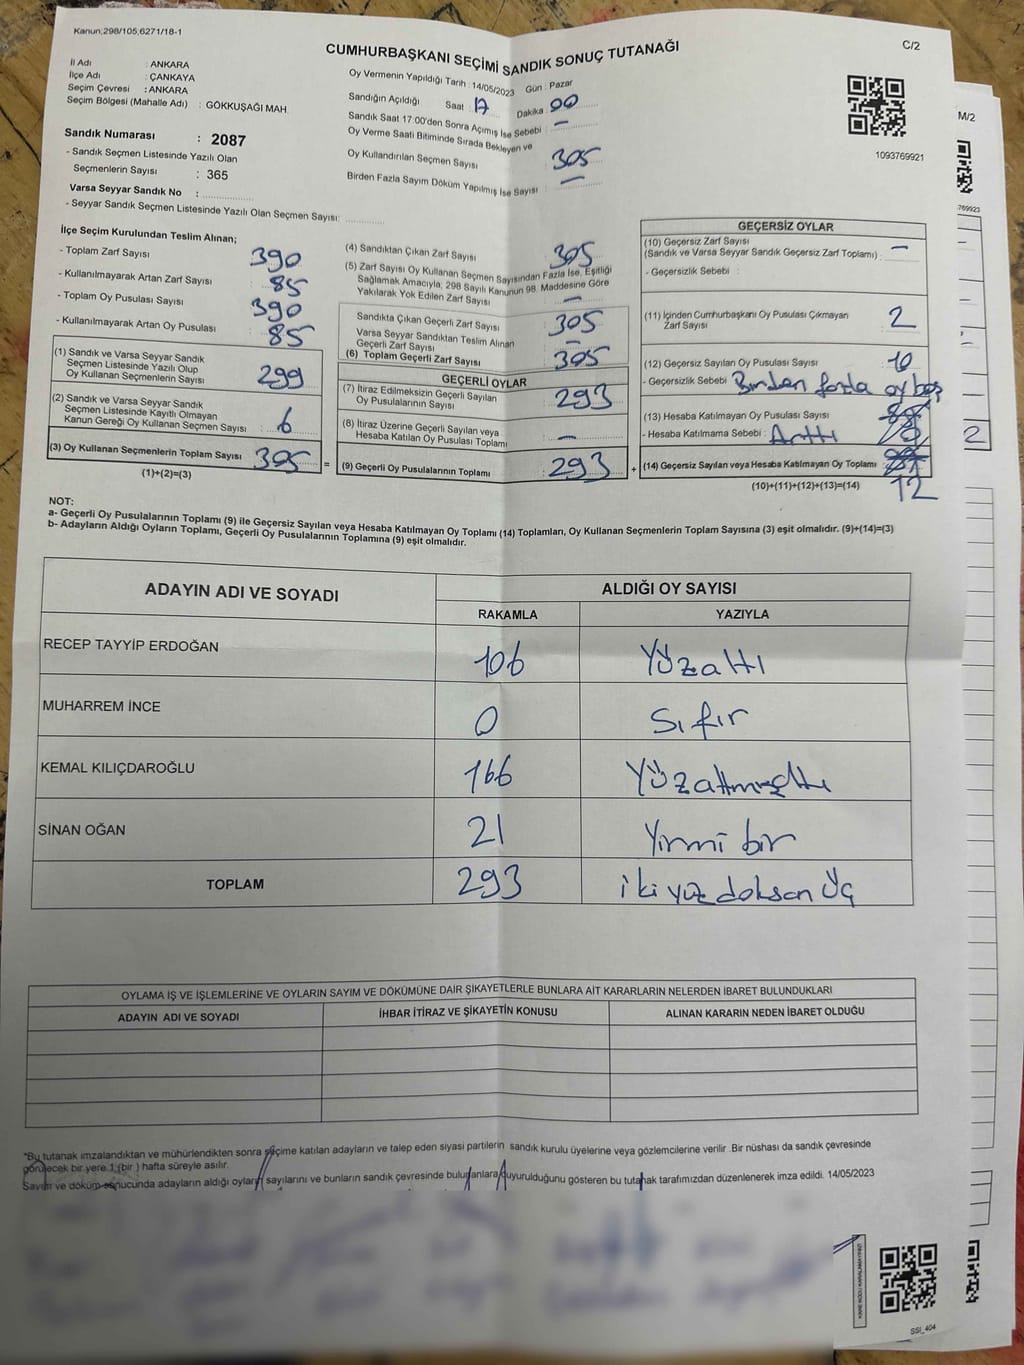 Kanun;298/105,6271/18-1
C/2
CUMHURBAŞKANI SEÇİMİ SANDIK SONUÇ TUTANAĞI
İl Adı : ANKARA
İlçe Adı : ÇANKAYA
Seçim Çevresi : ANKARA
Seçim Bölgesi (Mahalle Adı) : GÖKKUŞAĞI MAH.
Sandık Numarası : 2087
- Sandık Seçmen Listesinde Yazılı Olan
Seçmenlerin Sayısı : 365
Varsa Seyyar Sandık No :
- Seyyar Sandık Seçmen Listesinde Yazılı Olan Seçmen Sayısı:
Oy Vermenin Yapıldığı Tarih : 14/05/2023 Gün : Pazar
Sandığın Açıldığı Saat : 17 Dakika : 00
Sandık Saat 17:00'den Sonra Açımış İse Sebebi : —
Oy Verme Saati Bitiminde Sırada Bekleyen ve
Oy Kullandırılan Seçmen Sayısı : 305
Birden Fazla Sayım Döküm Yapılmış İse Sayısı : —
1093769921
M/2
769923
İlçe Seçim Kurulundan Teslim Alınan;
- Toplam Zarf Sayısı : 390
- Kullanılmayarak Artan Zarf Sayısı : 85
- Toplam Oy Pusulası Sayısı : 390
- Kullanılmayarak Artan Oy Pusulası : 85
(1) Sandık ve Varsa Seyyar Sandık
Seçmen Listesinde Yazılı Olup
Oy Kullanan Seçmenlerin Sayısı : 299
(2) Sandık ve Varsa Seyyar Sandık
Seçmen Listesinde Kayıtlı Olmayan
Kanun Gereği Oy Kullanan Seçmen Sayısı : 6
(3) Oy Kullanan Seçmenlerin Toplam Sayısı : 305 =
(1)+(2)=(3)
(4) Sandıktan Çıkan Zarf Sayısı : 305
(5) Zarf Sayısı Oy Kullanan Seçmen Sayısından Fazla İse, Eşitliği
Sağlamak Amacıyla; 298 Sayılı Kanunun 98. Maddesine Göre
Yakılarak Yok Edilen Zarf Sayısı : —
Sandıkta Çıkan Geçerli Zarf Sayısı : 305
Varsa Seyyar Sandıktan Teslim Alınan
Geçerli Zarf Sayısı : —
(6) Toplam Geçerli Zarf Sayısı : 305
GEÇERLİ OYLAR
(7) İtiraz Edilmeksizin Geçerli Sayılan
Oy Pusulalarının Sayısı : 293
(8) İtiraz Üzerine Geçerli Sayılan ve
Hesaba Katılan Oy Pusulası Toplamı : —
(9) Geçerli Oy Pusulalarının Toplamı : 293 +
GEÇERSİZ OYLAR
(10) Geçersiz Zarf Sayısı
(Sandık ve Varsa Seyyar Sandık Geçersiz Zarf Toplamı) : —
- Geçersizlik Sebebi :
(11) İçinden Cumhurbaşkanı Oy Pusulası Çıkmayan
Zarf Sayısı : 2
(12) Geçersiz Sayılan Oy Pusulası Sayısı : 10
- Geçersizlik Sebebi : Birden fazla oy baş
(13) Hesaba Katılmayan Oy Pusulası Sayısı
- Hesaba Katılmama Sebebi : Arttı
(14) Geçersiz Sayılan veya Hesaba Katılmayan Oy Toplamı :
12
(10)+(11)+(12)+(13)=(14)
2
NOT:
a- Geçerli Oy Pusulalarının Toplamı (9) ile Geçersiz Sayılan veya Hesaba Katılmayan Oy Toplamı (14) Toplamları, Oy Kullanan Seçmenlerin Toplam Sayısına (3) eşit olmalıdır. (9)+(14)=(3)
b- Adayların Aldığı Oyların Toplamı, Geçerli Oy Pusulalarının Toplamına (9) eşit olmalıdır.
ADAYIN ADI VE SOYADI ALDIĞI OY SAYISI
RAKAMLA YAZIYLA
RECEP TAYYİP ERDOĞAN 106 Yüzaltı
MUHARREM İNCE 0 Sıfır
KEMAL KILIÇDAROĞLU 166 Yüzatmışaltı
SİNAN OĞAN 21 Yirmi bir
TOPLAM 293 iki yüz doksan üç
OYLAMA İŞ VE İŞLEMLERİNE VE OYLARIN SAYIM VE DÖKÜMÜNE DAİR ŞİKAYETLERLE BUNLARA AİT KARARLARIN NELERDEN İBARET BULUNDUKLARI
ADAYIN ADI VE SOYADI İHBAR İTİRAZ VE ŞİKAYETİN KONUSU ALINAN KARARIN NEDEN İBARET OLDUĞU
*Bu tutanak imzalandıktan ve mühürlendikten sonra seçime katılan adayların ve talep eden siyasi partilerin sandık kurulu üyelerine veya gözlemcilerine verilir. Bir nüshası da sandık çevresinde
görülecek bir yere 1 (bir) hafta süreyle asılır.
Sayım ve döküm sonucunda adayların aldığı oyların sayılarını ve bunların sandık çevresinde bulunanlara duyurulduğunu gösteren bu tutanak tarafımızdan düzenlenerek imza edildi. 14/05/2023
SSİ_404